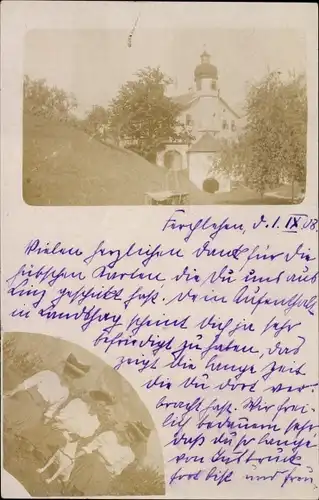 Ferchlehen, d. 1. IX 03.
Vielen herzlichen Dank für die
hübschen Karten die Du uns aus
Linz geschickt hast. Dein Aufenthalt
in Landshag scheint Dich ja sehr
befriedigt zu haben, das
zeigt die lange Zeit
die du dort ver-
bracht hast. Wir frei-
lich bedauern sehr
daß du so lange
von Innsbruck
fort bist und freu